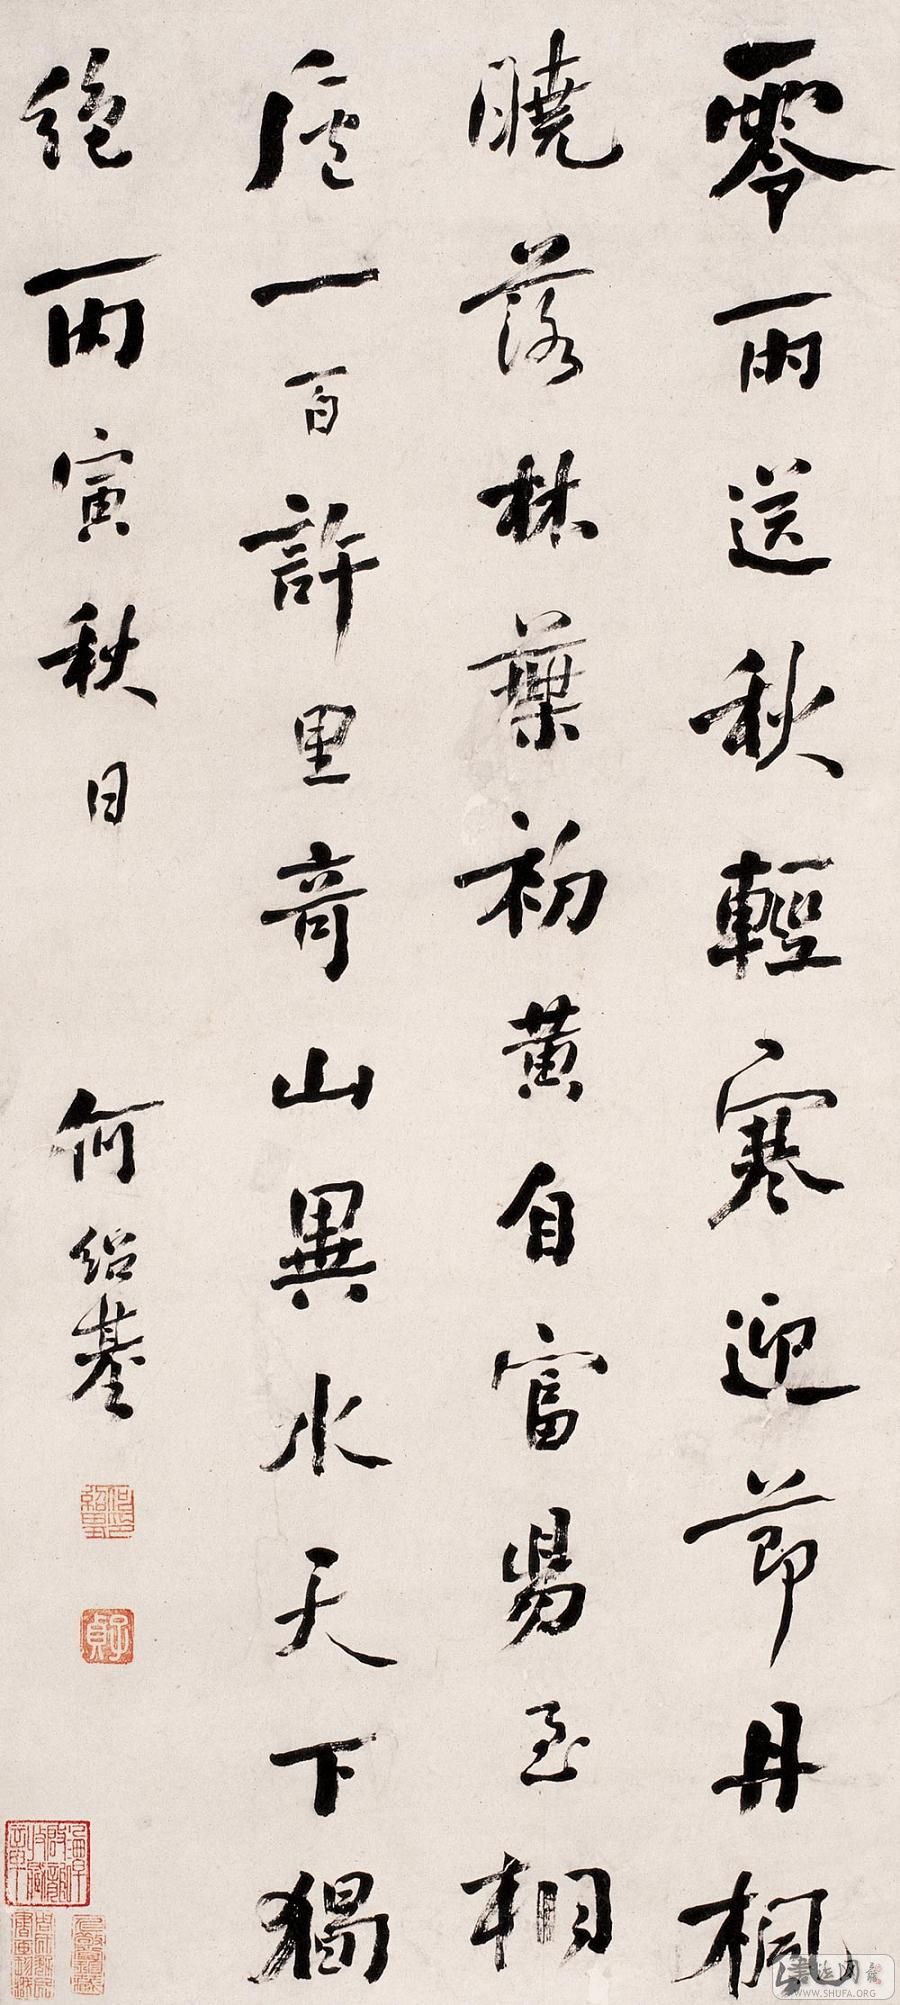 零雨送秋輕寒迎節丹楓
曉落林葉初黃自富昜至桐
廬一百許里奇山異水天下獨
絕丙寅秋日 何紹基
何紹基印
子貞
WWW.SHUFA.ORG